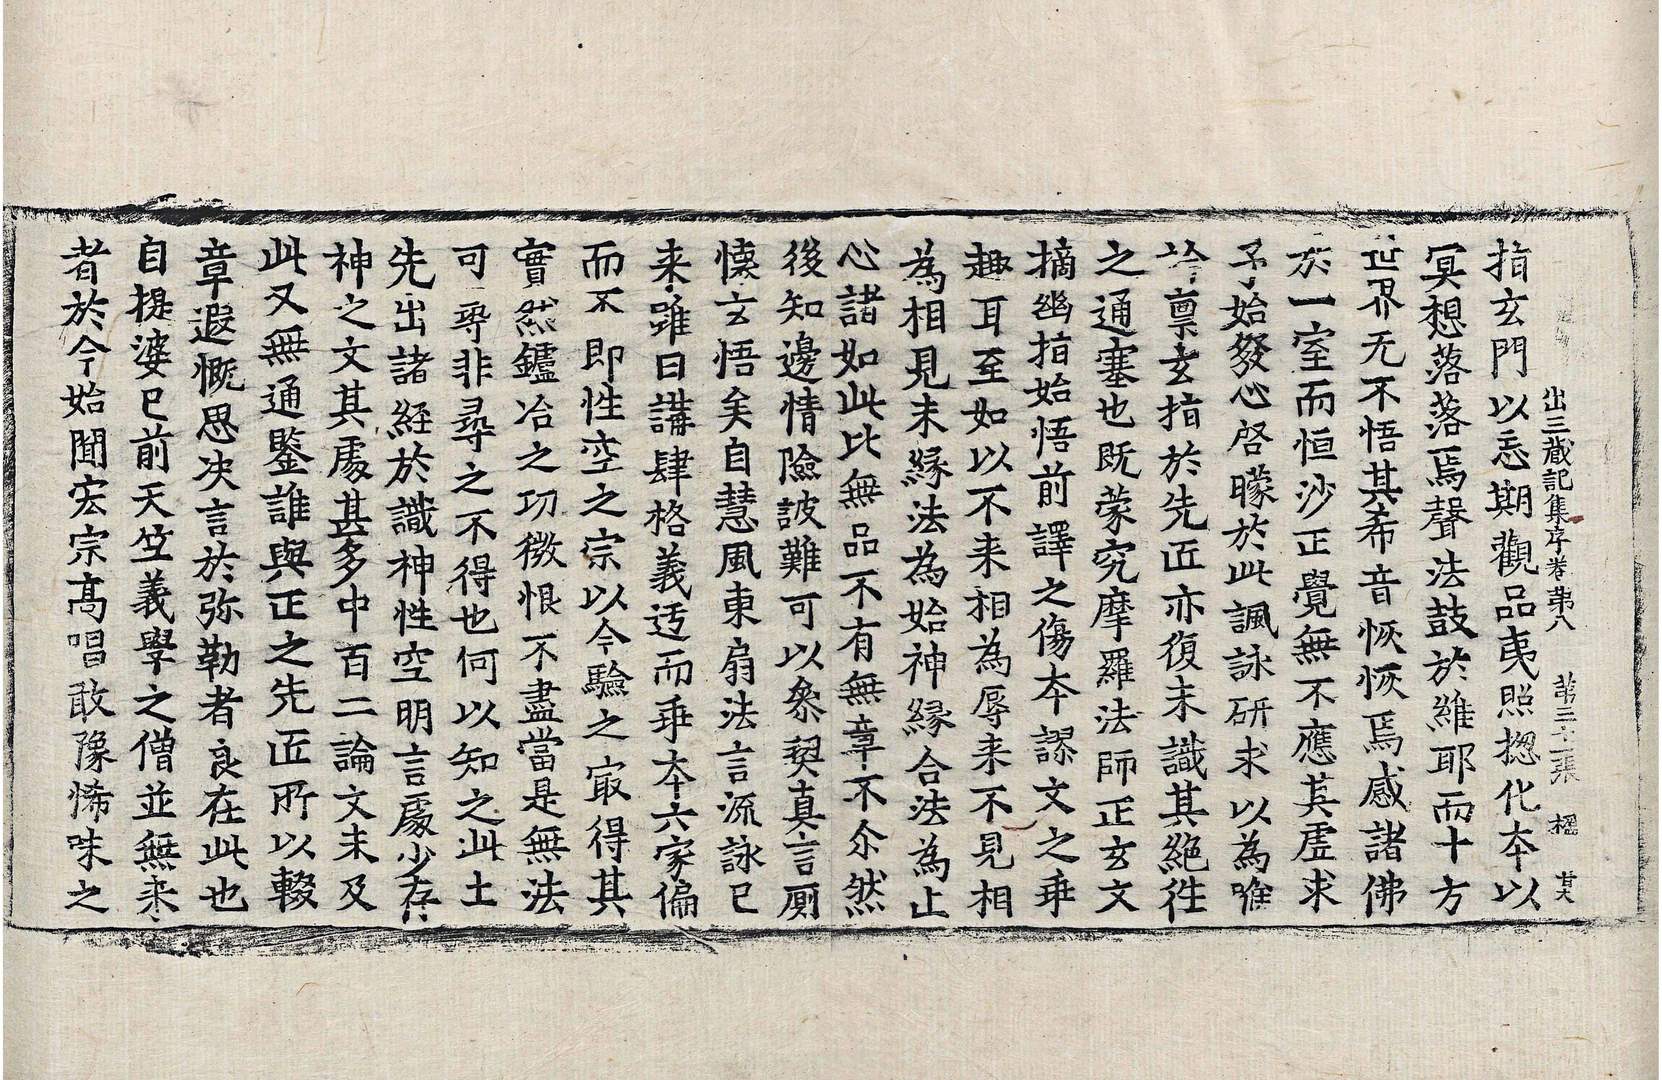 出三藏記集序卷第八 第三十二張 楹
指玄門以忘期觀品夷照揔化夲以
冥想落落焉聲法鼓於維耶而十方
世界无不悟其希音恢恢焉感諸佛
於一室而恒沙正覺無不應其虗求
予始發心啓矇於此諷詠研求以為喉
衿禀玄指於先匠亦復未識其絶徃
之通塞也既蒙究摩羅法師正玄文
摘幽指始悟前譯之傷夲謬文之乖
趣耳至如以不来相為辱来不見相
為相見未緣法為始神緣合法為止
心諸如此比無品不有無章不尒然
後知邊情險詖難可以叅契真言厠
懐玄悟矣自慧風東扇法言流詠已
来雖曰講肆格義迂而乖夲六家偏
而不即性空之宗以今驗之㝡得其
實然鑪冶之功微恨不盡當是無法
可尋非尋之不得也何以知之此土
先出諸經於識神性空明言處少存
神之文其處甚多中百二論文未及
此又無通鑒誰與正之先匠所以輟
章遐慨思决言於弥勒者良在此也
自提婆已前天竺義學之僧並無来
者於今始聞宏宗高唱敢豫悕味之